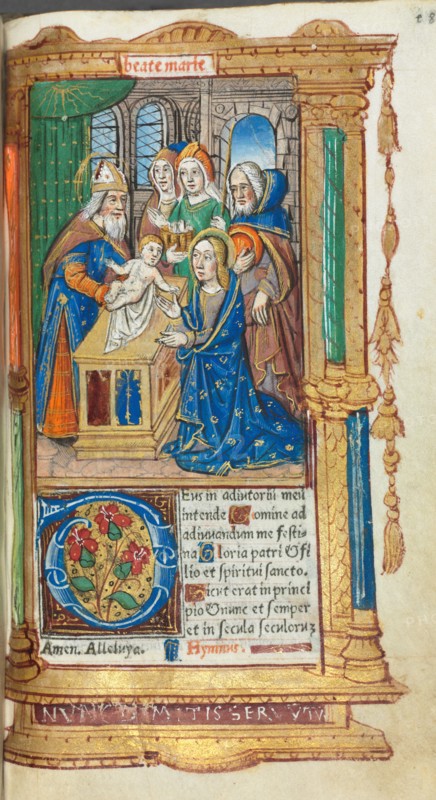 beate marie
Eus in adiutoriū meū
intende Domine ad
adiuuandum me festi⸗
na Gloria patri Et fi
lio et spiritui sancto.
Sicut erat in princi
pio Et nunc et semper
et in secula seculorūz
Amen. Alleluya. Hymnus.
NVNC DIMITIS SERVVTV